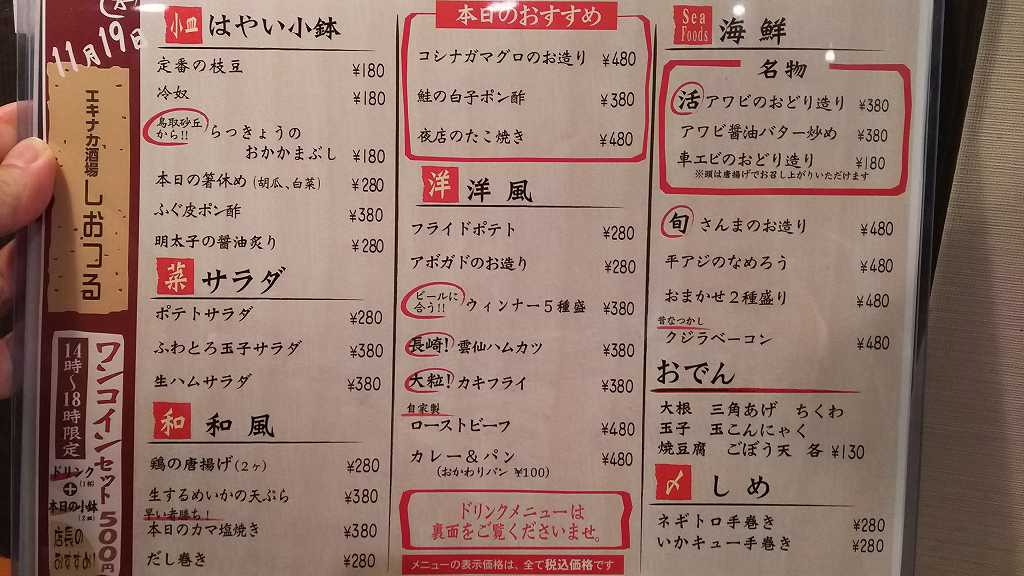 11月19日
エキナカ酒場
しおつる
ワンコインセット500円
14時〜18時限定
ドリンク(1杯)
+
本日の小鉢
店長の
おすすめ!
小皿 はやい小鉢
定番の枝豆 ¥180
冷奴 ¥180
鳥取砂丘から!! らっきょうの
おかかまぶし ¥180
本日の箸休め(胡瓜、白菜) ¥280
ふぐ皮ポン酢 ¥380
明太子の醤油炙り ¥280
菜 サラダ
ポテトサラダ ¥280
ふわとろ玉子サラダ ¥380
生ハムサラダ ¥380
和 和風
鶏の唐揚げ(2ヶ) ¥280
生するめいかの天ぷら ¥380
早い者勝ち!
本日のカマ塩焼き ¥380
だし巻き ¥280
本日のおすすめ
コシナガマグロのお造り ¥480
鮭の白子ポン酢 ¥380
夜店のたこ焼き ¥480
洋 洋風
フライドポテト ¥280
アボガドのお造り ¥280
ビールに合う!! ウィンナー5種盛 ¥380
長崎! 雲仙ハムカツ ¥380
大粒! カキフライ ¥380
自家製
ローストビーフ ¥480
カレー&パン ¥480
(おかわりパン ¥100)
ドリンクメニューは
裏面をご覧くださいませ。
メニューの表示価格は、全て税込価格です
Sea Foods 海鮮
名物
活 アワビのおどり造り ¥380
アワビ醤油バター炒め ¥380
車エビのおどり造り ¥180
※頭は唐揚げでお召し上がりいただけます
旬 さんまのお造り ¥480
平アジのなめろう ¥480
おまかせ2種盛り ¥480
昔なつかし
クジラベーコン ¥480
おでん
大根 三角あげ ちくわ
玉子 玉こんにゃく
焼豆腐 ごぼう天 各¥130
〆 しめ
ネギトロ手巻き ¥280
いかキュー手巻き ¥280